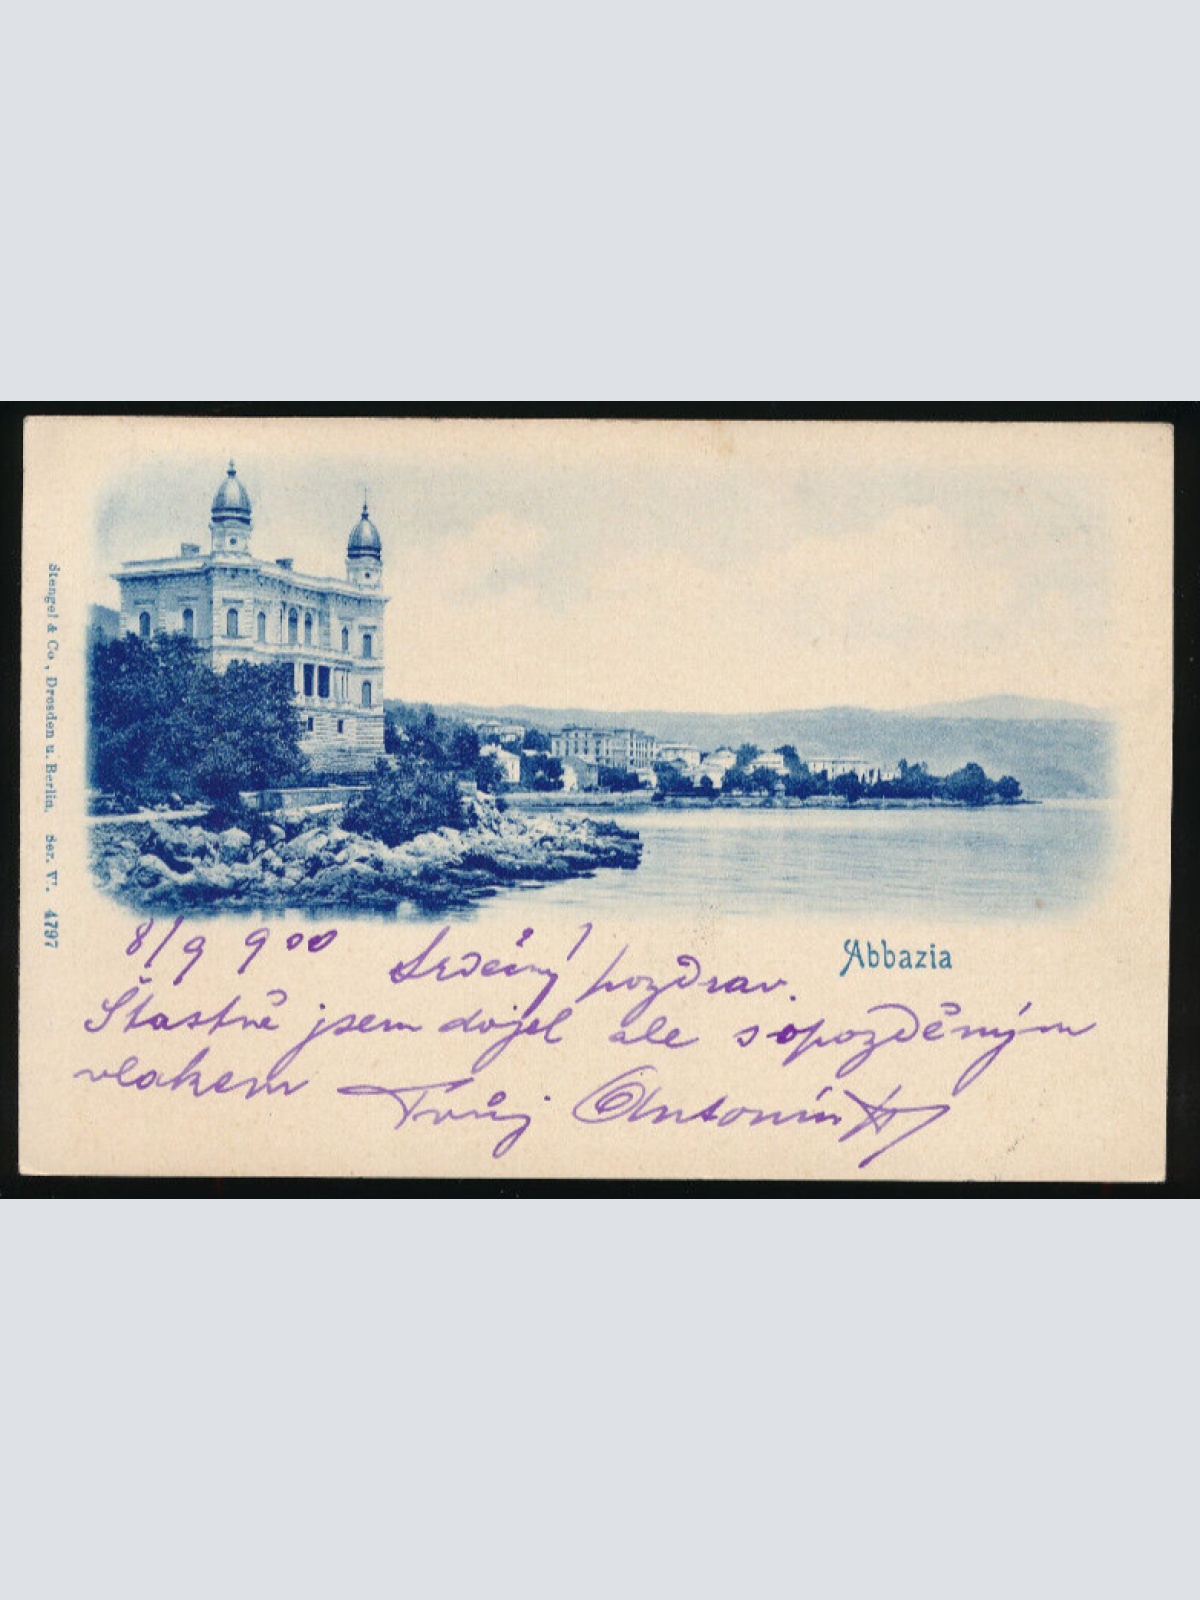 Stengel & Co., Dresden u. Berlin. Ser. V. 4797
Abbazia
8/9 900 Srdečný pozdrav.
Štastně jsem dojel ale s opozděným
vlakem Tvůj Antonín